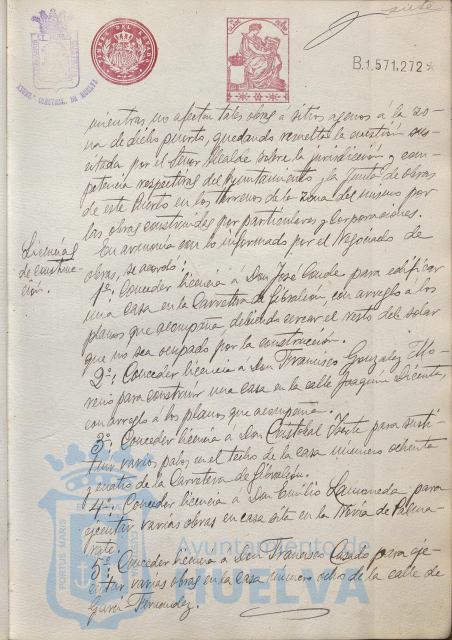 siete
TIMBRE DEL ESTADO
B.1.571.272
mientras no afectan tales obras a sitios agenos á la zo-
na de dicho puerto, quedando resuelta la cuestión sus-
citada por el Señor Alcalde sobre la jurisdicción y com-
petencia respectivas del Ayuntamiento y la Junta de obras
de este Puerto en los terrenos de la zona del mismo por
las obras construidas por particulares y Corporaciones.
Licencias
de construc-
ción.
En armonía con lo informado por el Negociado de
obras, se acordó:
1º: Conceder licencia á Don José Conde para edificar
una casa en la Carretera de Gibraleón, con arreglo á los
planos que acompaña, debiendo cercar el resto del solar
que no sea ocupado por la construcción.
2º: Conceder licencia a don Francisco González Mo-
reno para construir una casa en la calle Joaquín Dicenta,
con arreglo á los planos que acompaña.
3º: Conceder licencia á Don Cristobal para susti-
tuir varios palos en el techo de la casa número ochenta
y cuatro de la Carretera de Gibraleón.
4º: Conceder licencia á Don Emilio Lamoneda para
ejecutar varias obras en casa sita en la
5º: Conceder licencia á Don Francisco Casado para eje-
cutar varias obras en la casa número ocho de la calle de
Garci-Fernandez.
PORTUS MARIS
Ayuntamiento de
HUELVA